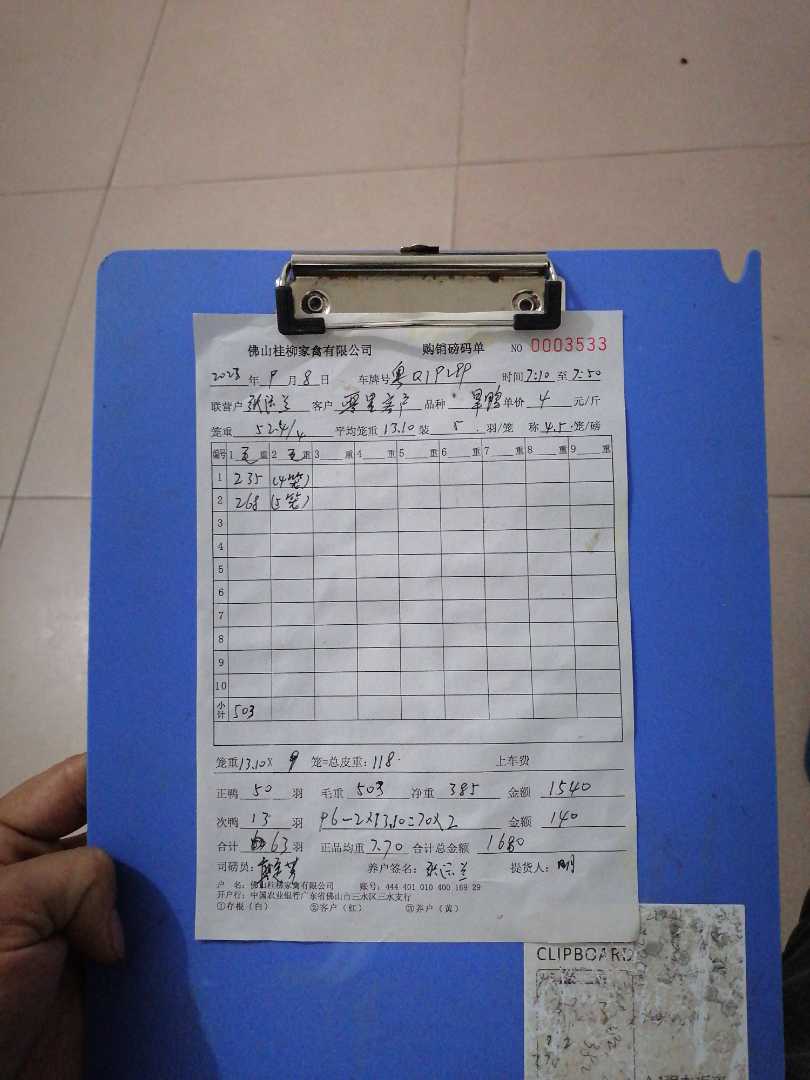 佛山桂柳家禽有限公司 购销磅码单 NO 0003533
2023 年 9 月 8 日 车牌号 粤Q19289 时间 7:10 至 7:50
联营户 客户 零星客户 品种 单价 4 元/斤
笼重 52.4/4 平均笼重 13.10 装 5 羽/笼 称 4.5 笼/磅
编号 1 毛 重 2 毛 重 3 重 4 重 5 重 6 重 7 重 8 重 9 重
1 235 (4笼)
2 268 (5笼)
3
4
5
6
7
8
9
10
小计 503
笼重 13.10 X 9 笼=总皮重: 118. 上车费
正鸭 50 羽 毛重 503 净重 385 金额 1540
次鸭 13 羽 96-2X13.10=70X2 金额 140
合计 63 羽 正品均重 7.70 合计总金额 1680
司磅员: 养户签名: 提货人:
户 名: 佛山桂柳家禽有限公司 账号: 444 401 010 400 169 29
开户行: 中国农业银行广东省佛山市三水区三水支行
①存根（白） ②客户（红） ③养户（黄）
CLIPBOARD